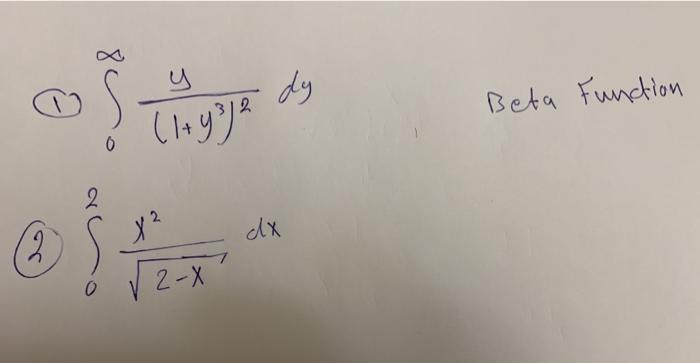 ① ∫₀^∞ y/(1+y³)² dy Beta Function
② ∫₀² x²/√(2-x) dx